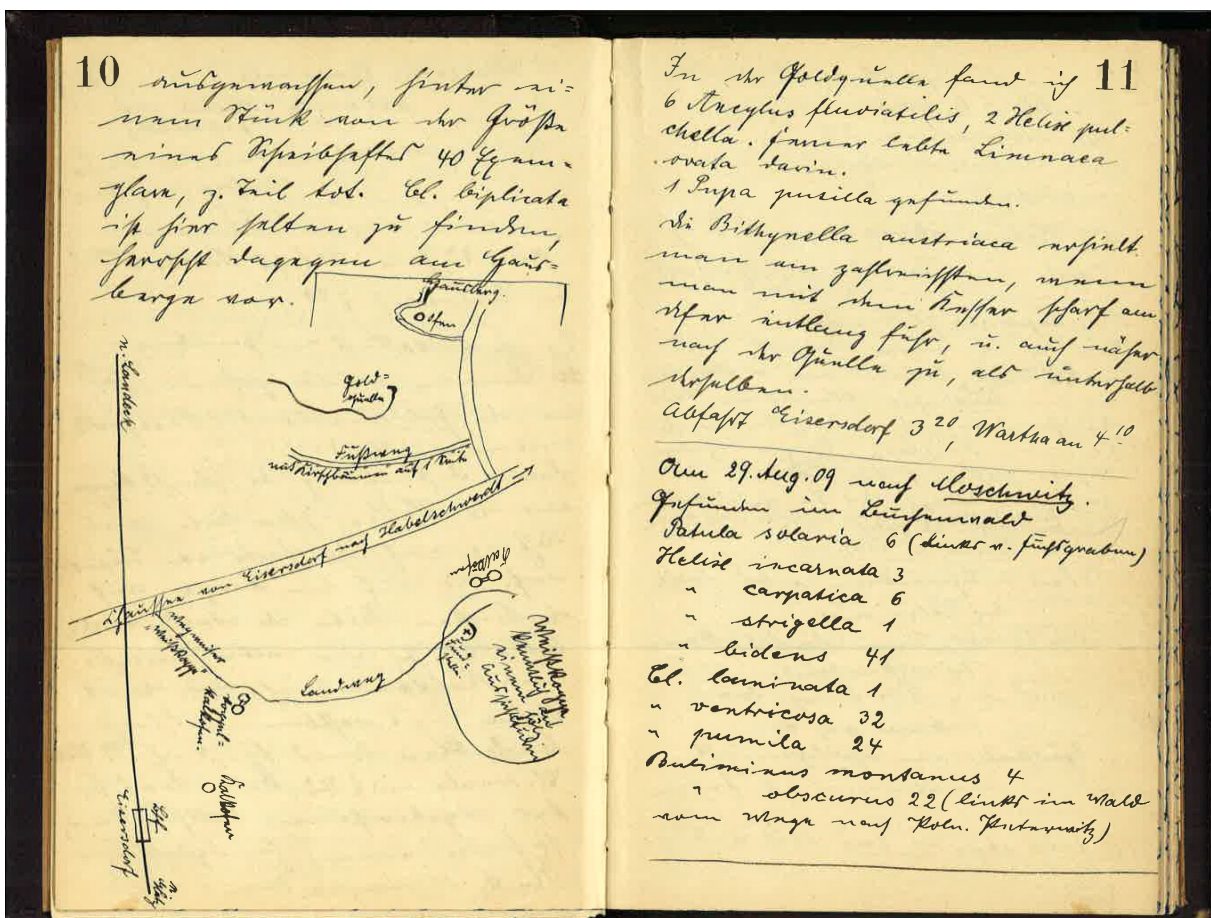 10
ausgewachsen, hinter ei=
nem Stück von der Größe
eines Schreibheftes 40 Exem=
plare, z. Teil tot. Cl. biplicata
ist hier selten zu finden,
herrscht dagegen am Haus=
berge vor.
Hausberg.
Ofen
Gold=
quelle
Fußweg
mit Kirschbäumen auf 1 Seite
n. Landeck
Chaussee von Eisersdorf nach Habelschwerdt
Wegweiser
"Weißkoppe"
Doppel-
kalkofen.
Landweg
Kalköfen
Fund-
stelle.
Weißkoppe
kenntlich an
einem
Kalkofen
Bhf
Eisersdorf
n.
Glatz
11
In der Goldquelle fand ich
6 Ancylus fluviatilis, 2 Helix pul=
chella. Ferner lebte Limnaea
ovata darin.
1 Pupa pusilla gefunden.
Die Bithynella austriaca erhielt
man am zahlreichsten, wenn
man mit dem Kesser scharf am
Ufer entlang fuhr, u. auch näher
nach der Quelle zu, als unterhalb
derselben.
Abfahrt Eisersdorf 3 20, Wartha an 4 10
Am 29. Aug. 09 nach Moschwitz.
Gefunden im Buchenwald
Patula solaria 6 (links v. Fuchsgraben)
Helix incarnata 3
" carpatica 6
" strigella 1
" bidens 41
Cl. laminata 1
" ventricosa 32
" pumila 24
Buliminus montanus 4
" obscurus 22 (links im Wald
vom Wege nach Poln. Peterwitz)